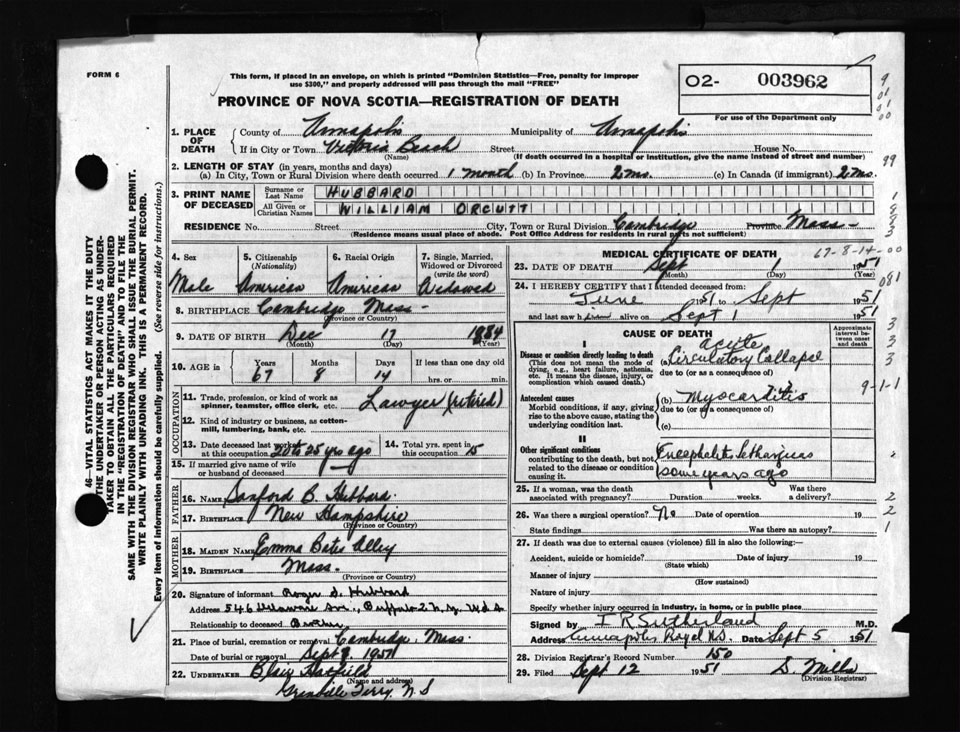 FORM 6
This form, if placed in an envelope, on which is printed "Dominion Statistics—Free, penalty for improper
use $300," and properly addressed will pass through the mail "FREE"
PROVINCE OF NOVA SCOTIA—REGISTRATION OF DEATH
O2- 003962
For use of the Department only
1. PLACE OF DEATH { County of Annapolis Municipality of Annapolis
If in City or Town Victoria Beach Street House No.
(Name) (If death occurred in a hospital or institution, give the name instead of street and number)
2. LENGTH OF STAY (in years, months and days)
(a) In City, Town or Rural Division where death occurred 1 month (b) In Province 2 mo. (c) In Canada (if immigrant) 2 mo.
3. PRINT NAME OF DECEASED { Surname or Last Name HUBBARD
All Given or Christian Names WILLIAM ORCUTT
RESIDENCE No. Street City, Town or Rural Division Cambridge Province Mass-
(Residence means usual place of abode. Post Office Address for residents in rural parts not sufficient)
4. Sex 5. Citizenship (Nationality) 6. Racial Origin 7. Single, Married, Widowed or Divorced (write the word)
Male American American Widowed
8. BIRTHPLACE Cambridge Mass-
(Province or Country)
9. DATE OF BIRTH Dec 17 1884
(Month) (Day) (Year)
10. AGE in { Years Months Days If less than one day old
67 8 14 hrs. or min.
OCCUPATION
11. Trade, profession, or kind of work as spinner, teamster, office clerk, etc. Lawyer (retired)
12. Kind of industry or business, as cotton-mill, lumbering, bank, etc.
13. Date deceased last worked at this occupation 20 to 25 yrs ago 14. Total yrs. spent in this occupation 15
15. If married give name of wife or husband of deceased
FATHER
16. NAME Sanford B. Hubbard
17. BIRTHPLACE New Hampshire
(Province or Country)
MOTHER
18. MAIDEN NAME Emma Bates Alley
19. BIRTHPLACE Mass.
(Province or Country)
20. Signature of informant Roger S. Hubbard
Address 546 Delaware Ave., Buffalo 2 N.Y. U.S.A
Relationship to deceased Brother
21. Place of burial, cremation or removal Cambridge, Mass.
Date of burial or removal Sept 1951
22. UNDERTAKER Blair
(Name and address)
Granville Ferry, N.S
MEDICAL CERTIFICATE OF DEATH
67-8-14-00
23. DATE OF DEATH Sept 1 1951
(Month) (Day) (Year)
24. I HEREBY CERTIFY that I attended deceased from:
June 1951 to Sept 1951
and last saw him alive on Sept 1 1951
CAUSE OF DEATH
Approximate interval between onset and death
I
Disease or condition directly leading to death
(This does not mean the mode of dying, e.g., heart failure, asthenia, etc. It means the disease, injury, or complication which caused death.)
acute
Circulatory Collapse
due to (or as a consequence of)
Antecedent causes
Morbid conditions, if any, giving rise to the above cause, stating the underlying condition last.
(b) Myocarditis
due to (or as a consequence of)
(c)
9-1-1
II
Other significant conditions
contributing to the death, but not related to the disease or condition causing it.
Encephalitis Lethargica
some years ago
25. If a woman, was the death associated with pregnancy? Duration weeks. Was there a delivery?
26. Was there a surgical operation? No Date of operation 19
State findings Was there an autopsy?
27. If death was due to external causes (violence) fill in also the following:—
Accident, suicide or homicide? Date of injury 19
(State which)
Manner of injury
(How sustained)
Nature of injury
Specify whether injury occurred in industry, in home, or in public place
Signed by I R Sutherland M.D.
Address Annapolis Royal N.S. Date Sept 5 1951
28. Division Registrar's Record Number 150
29. Filed Sept 12 1951 S. Mills
(Division Registrar)
46—VITAL STATISTICS ACT MAKES IT THE DUTY
OF THE UNDERTAKER OR PERSON ACTING AS UNDER-
TAKER TO OBTAIN ALL THE PARTICULARS REQUIRED
IN THE "REGISTRATION OF DEATH" AND TO FILE THE
SAME WITH THE DIVISION REGISTRAR WHO SHALL ISSUE THE BURIAL PERMIT.
WRITE PLAINLY WITH UNFADING INK. THIS IS A PERMANENT RECORD.
Every item of information should be carefully supplied. (See reverse side for instructions.)